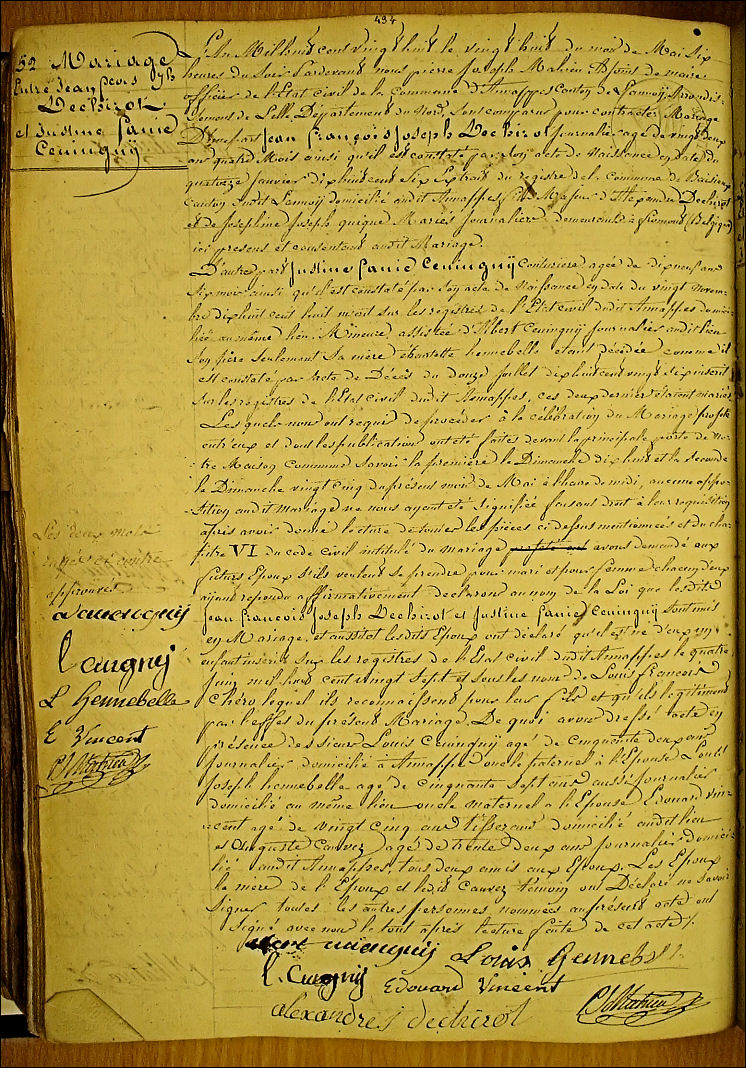 434
52 Mariage
Entre Jean frcois Jph
Dechirot
et Justine fanie
Ceuingnÿ
L'An Mil huit cent vingt huit le vingt huit du mois de Mai Six
heures du Soir Pardevant nous pierre Joseph Mathieu Adjoint de maire
officier de l'Etat Civil de la Commune d'Annappes Canton de Lannoij Arrondis-
sement de Lille, Departement du Nord, Sont comparus pour contracter Mariage
D'une part Jean françois Joseph Dechirot Journalier agé de vingt deux
ans quatre Mois ainsi qu'il est constaté par Son acte de Naissance en date du
quatorze Janvier dix huit cent Six Extrait du registre de la Commune de Baisieux
Canton dudit Lannoij domicilié audit Annappes fils Majeur d'Alexandre Dechirot
et de Josephine Joseph quique Mariés Journaliers demeurants à fromont (Belgique)
ici présens et consentans audit Mariage.
D'autre part Justine fanie Ceuingnÿ Couturiere agée de dix neuf ans
Six mois ainsi qu'il est constaté par Son acte de Naissance en date du vingt Novem-
bre dix huit cent huit inscrit sur les registres de l'Etat Civil dudit Annappes domici-
liée au même lieu, Mineure, assistée d'Albert Ceuingnÿ Journalier audit lieu
Son père Seulement Sa mère Charlotte hennebelle étant décédée comme il
est constaté par Acte de Décès du Douze Juillet dix huit cent vingt Six inscrit
Sur les registres de l'Etat Civil dudit Annappes, ces deux derniers étaient mariés
Les quels nous ont requis de procéder à la célébration du Mariage projeté
entr'eux et dont les publications ont été faites devant la principale porte de no-
tre Maison Commune Savoir: la première le Dimanche dix huit et la Seconde
le Dimanche vingt Cinq du présent mois de Mai à l'heure de midi, aucune oppo-
sition audit mariage ne nous ayant été Signifiée faisant droit à leur requisition
après avoir donné lecture de toutes les pièces ci-dessus mentionnées et du cha-
pitre VI du code Civil intitulé du Mariage avons demandé aux
futurs Epoux S'ils veulent Se prendre pour mari et pour femme chacun d'eux
ayant repondu affirmativement declarons au nom de la Loi que lesdits
Jean françois Joseph Dechirot et Justine fanie Ceuingnÿ Sont unis
en Mariage, et aussitot lesdits Epoux ont déclaré qu'il est né d'eux un
enfant inscrit Sur les registres de l'Etat Civil dudit Annappes le quatre
Juin mil huit cent vingt Sept et sous les noms de Louis françois
Chéro lequel ils reconnaissent pour leur fils et qu'ils légitiment
par l'effet du présent Mariage. De quoi avons dressé acte en
présence des sieurs Louis Ceuingnÿ agé de Cinquante deux ans
Journalier domicilié à Annappes oncle paternel à l'Epouse, Louis
Joseph hennebelle agé de cinquante Sept ans aussi Journalier
domicilié au même lieu oncle maternel a l'Epouse, Edouard Vin-
cent agé de vingt cinq ans tisserand domicilié audit lieu
et Auguste Cauvez agé de trente deux ans journalier domici-
lié audit Annappes, tous deux amis aux Epoux. Les Epoux
la mère de l'Epoux et ledit Cauvez témoin ont Déclaré ne Savoir
Signer toutes les autres personnes nommées au présent acte ont
Signé avec nous le tout après lecture faite de cet acte /.
Les deux mots
rayés ci contre
approuvés
L Ceuignÿ
L Hennebelle
E Vincent
Louis Hennebell
L. Ceuignÿ Edouard Vincent
alexandre j dechirot